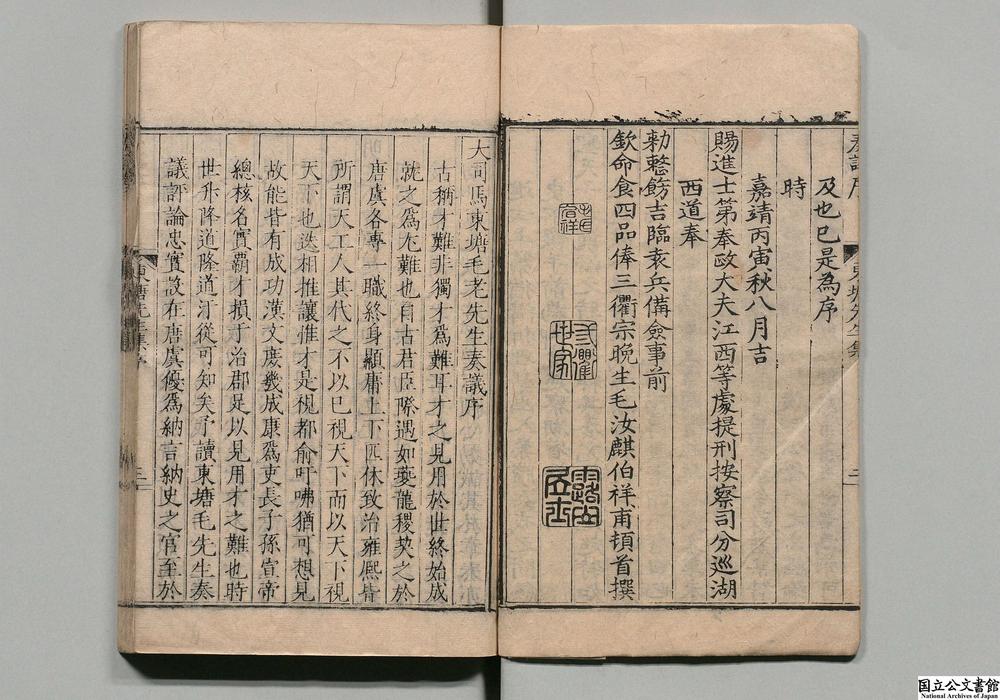 及也已是為序
時
嘉靖丙寅秋八月吉
賜進士第奉政大夫江西等處提刑按察司分巡湖
西道奉
勑整飭吉臨袁兵備僉事前
欽命食四品俸三衢宗晚生毛汝麒伯祥甫頓首撰
三衢世家
大司馬東塘毛老先生奏議序
古稱才難非獨才爲難耳才之見用於世終始成
就之爲尤難也自古君臣際遇如夔龍稷契之於
唐虞各專一職終身顯庸上下匹休致治雍熙皆
所謂天工人其代之不以已視天下而以天下視
天下也迭相推讓惟才是視都俞吁咈猶可想見
故能皆有成功漢文庶幾成康爲吏長子孫宣帝
總核名實覇才損于治郡足以見用才之難也時
世升降道隆道汙從可知矣予讀東塘毛先生奏
議評論忠實設在唐虞優爲納言納史之官至於
国立公文書館
National Archives of Japan